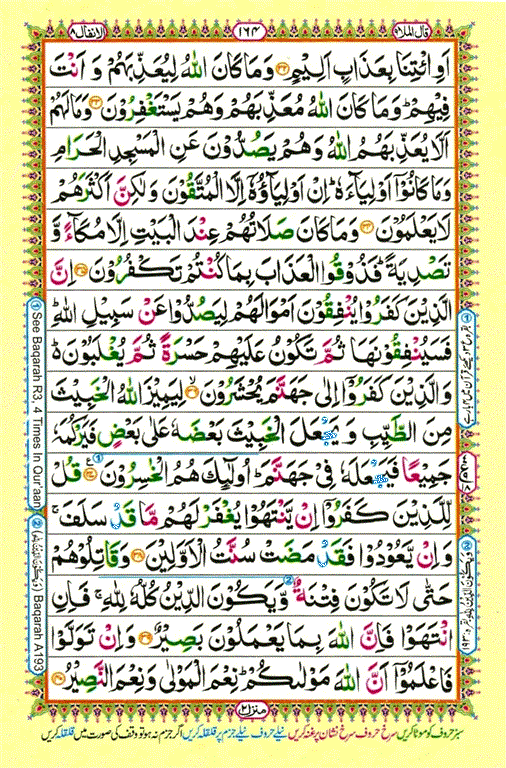 قال الملا ۹
۱۶۴
الانفال ۸
اَوِ ائْتِنَا بِعَذَابٍ اَلِيْمٍ ﴿۳۲﴾ وَمَا كَانَ اللّٰهُ لِيُعَذِّبَهُمْ وَ اَنْتَ
فِيْهِمْ ؕ وَمَا كَانَ اللّٰهُ مُعَذِّبَهُمْ وَهُمْ يَسْتَغْفِرُوْنَ ﴿۳۳﴾ وَمَا لَهُمْ
اَلَّا يُعَذِّبَهُمُ اللّٰهُ وَهُمْ يَصُدُّوْنَ عَنِ الْمَسْجِدِ الْحَرَامِ
وَمَا كَانُوْۤا اَوْلِيَآءَهٗ ؕ اِنْ اَوْلِيَآؤُهٗۤ اِلَّا الْمُتَّقُوْنَ وَلٰكِنَّ اَكْثَرَهُمْ
لَا يَعْلَمُوْنَ ﴿۳۴﴾ وَمَا كَانَ صَلَاتُهُمْ عِنْدَ الْبَيْتِ اِلَّا مُكَآءً وَّ
تَصْدِيَةً ؕ فَذُوْقُوا الْعَذَابَ بِمَا كُنْتُمْ تَكْفُرُوْنَ ﴿۳۵﴾ اِنَّ
الَّذِيْنَ كَفَرُوْا يُنْفِقُوْنَ اَمْوَالَهُمْ لِيَصُدُّوْا عَنْ سَبِيْلِ اللّٰهِ ؕ
فَسَيُنْفِقُوْنَهَا ثُمَّ تَكُوْنُ عَلَيْهِمْ حَسْرَةً ثُمَّ يُغْلَبُوْنَ ؕ۬
وَالَّذِيْنَ كَفَرُوْۤا اِلٰى جَهَنَّمَ يُحْشَرُوْنَ ﴿ۙ۳۶﴾ لِيَمِيْزَ اللّٰهُ الْخَبِيْثَ
مِنَ الطَّيِّبِ وَ يَجْعَلَ الْخَبِيْثَ بَعْضَهٗ عَلٰى بَعْضٍ فَيَرْكُمَهٗ
جَمِيْعًا فَيَجْعَلَهٗ فِيْ جَهَنَّمَ ؕ اُولٰٓئِكَ هُمُ الْخٰسِرُوْنَ ﴿۳۷﴾ قُلْ
لِّلَّذِيْنَ كَفَرُوْۤا اِنْ يَّنْتَهُوْا يُغْفَرْ لَهُمْ مَّا قَدْ سَلَفَ ۚ
وَاِنْ يَّعُوْدُوْا فَقَدْ مَضَتْ سُنَّتُ الْاَوَّلِيْنَ ﴿۳۸﴾ وَقَاتِلُوْهُمْ
حَتّٰى لَا تَكُوْنَ فِتْنَةٌ وَّيَكُوْنَ الدِّيْنُ كُلُّهٗ لِلّٰهِ ۚ فَاِنِ
انْتَهَوْا فَاِنَّ اللّٰهَ بِمَا يَعْمَلُوْنَ بَصِيْرٌ ﴿۳۹﴾ وَاِنْ تَوَلَّوْا
فَاعْلَمُوْۤا اَنَّ اللّٰهَ مَوْلٰىكُمْ ؕ نِعْمَ الْمَوْلٰى وَنِعْمَ النَّصِيْرُ ﴿۴۰﴾
منزل ۲
سبز حروف کو موٹا کریں سرخ حروف سرخ نشان پر غنہ کریں نیلے حروف نیلے جزم پر قلقلہ کریں اگر جزم نہ ہو تو وقف کی صورت میں قلقلہ کریں
① See Baqarah R3, 4 Times In Qur'aan
② (وَيَكُوْنَ الدِّيْنُ لِلّٰهِ) Baqarah A193